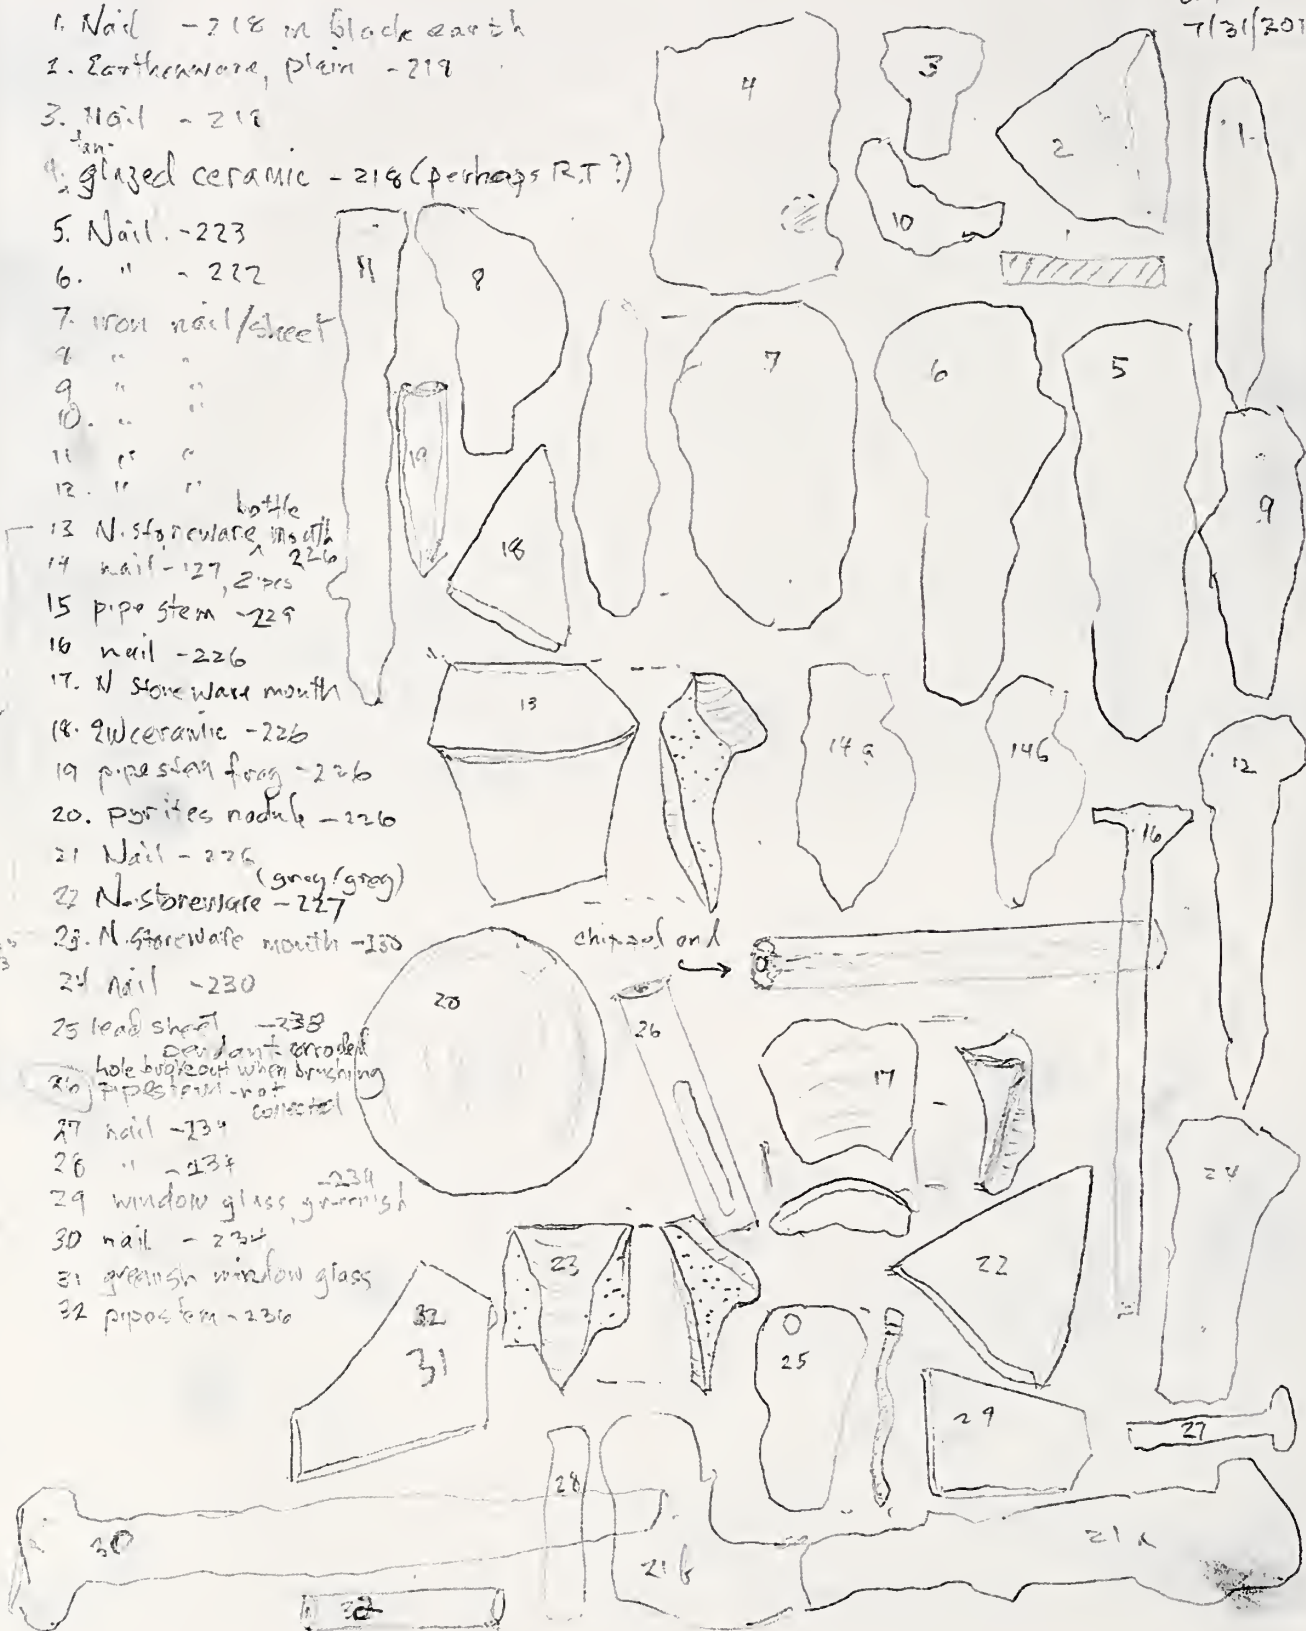 7/31/201
1. Nail - 218 in black earth
2. Earthenware, plain - 219
3. Nail - 218
tan
4. glazed ceramic - 218 (perhaps R.T?)
5. Nail - 223
6. " - 222
7. iron nail/sheet
8 " "
9 " "
10. " "
11 " "
12. " "
bottle
13 N. stoneware mouth
226
14 nail - 127, 2 pcs
15 pipe stem - 229
16 nail - 226
17. N Stoneware mouth
18. ceramic - 226
19 pipestem frag - 226
20. pyrites nodule - 226
21 Nail - 226
(gray/grey)
22 N. stoneware - 227
23. N. Stoneware mouth - 230
24 nail - 230
25 lead sheet - 238
pendant corroded
hole broke out when brushing
26 pipestem - not
collected
27 nail - 234
28 " - 234
- 234
29 window glass, greenish
30 nail - 234
31 greenish window glass
32 pipestem - 236
4
3
2
1
10
11
8
7
6
5
19
9
18
13
14a
14b
12
16
chipped end
20
26
17
24
23
22
32
31
25
29
27
28
30
21b
21a
32